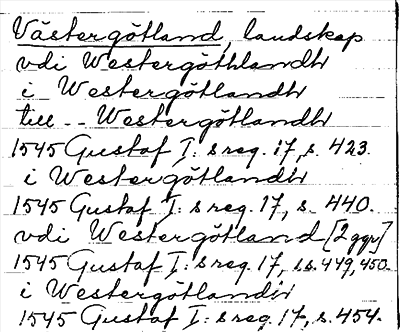 Västergötland, landskap
vdi Westergöthlandh
i Westergötlandh
till -- Westergötlandh
1545 Gustaf I:s reg. 17, s. 423.
i Westergötlandh
1545 Gustaf I:s reg. 17, s. 440.
vdi Westergötland [2 ggr]
1545 Gustaf I:s reg. 17, ss. 449, 450.
i Westergötlandh
1545 Gustaf I:s reg. 17, s. 454.